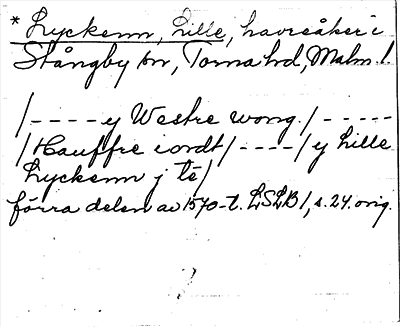 * Lyckenn, Lille, havreåker i
Stångby sn, Torna hd, Malm. l.
/ - - - - y Westre wong. / - - - - -
/ Hauffre iordt / - - - - / y Lille
Lyckenn j té /
förra delen av 1570-t. LSLB 1, s. 24. orig.